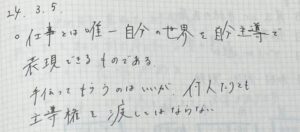 24. 3. 5.
○ 仕事とは唯一自分の世界を自分主導で
表現できるものである。
手伝ってもらうのはいいが、何人たりとも
主導権を渡してはならない